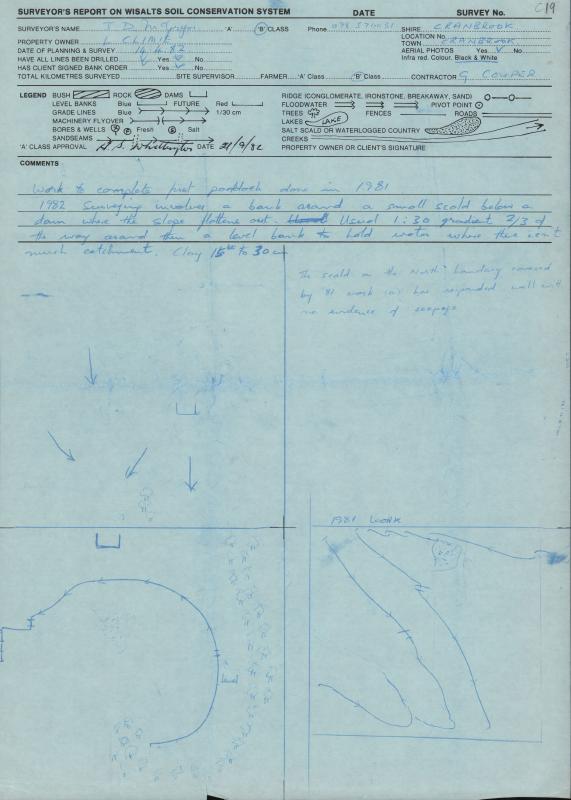 C19
SURVEYOR'S REPORT ON WISALTS SOIL CONSERVATION SYSTEM DATE SURVEY No.
SURVEYOR'S NAME T.D. McGregor 'A' 'B' CLASS Phone SHIRE CRANBROOK
PROPERTY OWNER LOCATION No.
DATE OF PLANNING & SURVEY 14.4.82 TOWN CRANBROOK
HAVE ALL LINES BEEN DRILLED Yes No AERIAL PHOTOS Yes No
HAS CLIENT SIGNED BANK ORDER Yes No Infra red. Colour. Black & White
TOTAL KILOMETRES SURVEYED SITE SUPERVISOR FARMER 'A' Class 'B' Class CONTRACTOR G. COWPER
LEGEND BUSH ROCK DAMS RIDGE (CONGLOMERATE, IRONSTONE, BREAKAWAY, SAND)
LEVEL BANKS Blue FUTURE Red FLOODWATER PIVOT POINT
GRADE LINES Blue 1/30 cm TREES FENCES ROADS
MACHINERY FLYOVER LAKES LAKE
BORES & WELLS Fresh Salt SALT SCALD OR WATERLOGGED COUNTRY
SANDSEAMS CREEKS
'A' CLASS APPROVAL H.S. Whittington DATE 21/9/82 PROPERTY OWNER OR CLIENT'S SIGNATURE
COMMENTS
Work to complete first paddock done in 1981
1982 Surveying involves a bank around a small scald below a
dam where the slope flattens out. Usual 1:30 gradient 2/3 of
the way around then a level bank to hold water where there isn't
much catchment. Clay 15 to 30 cm
The scald on the North boundary covered
by '81 work has responded well with
no evidence of seepage
1981 WORK
level